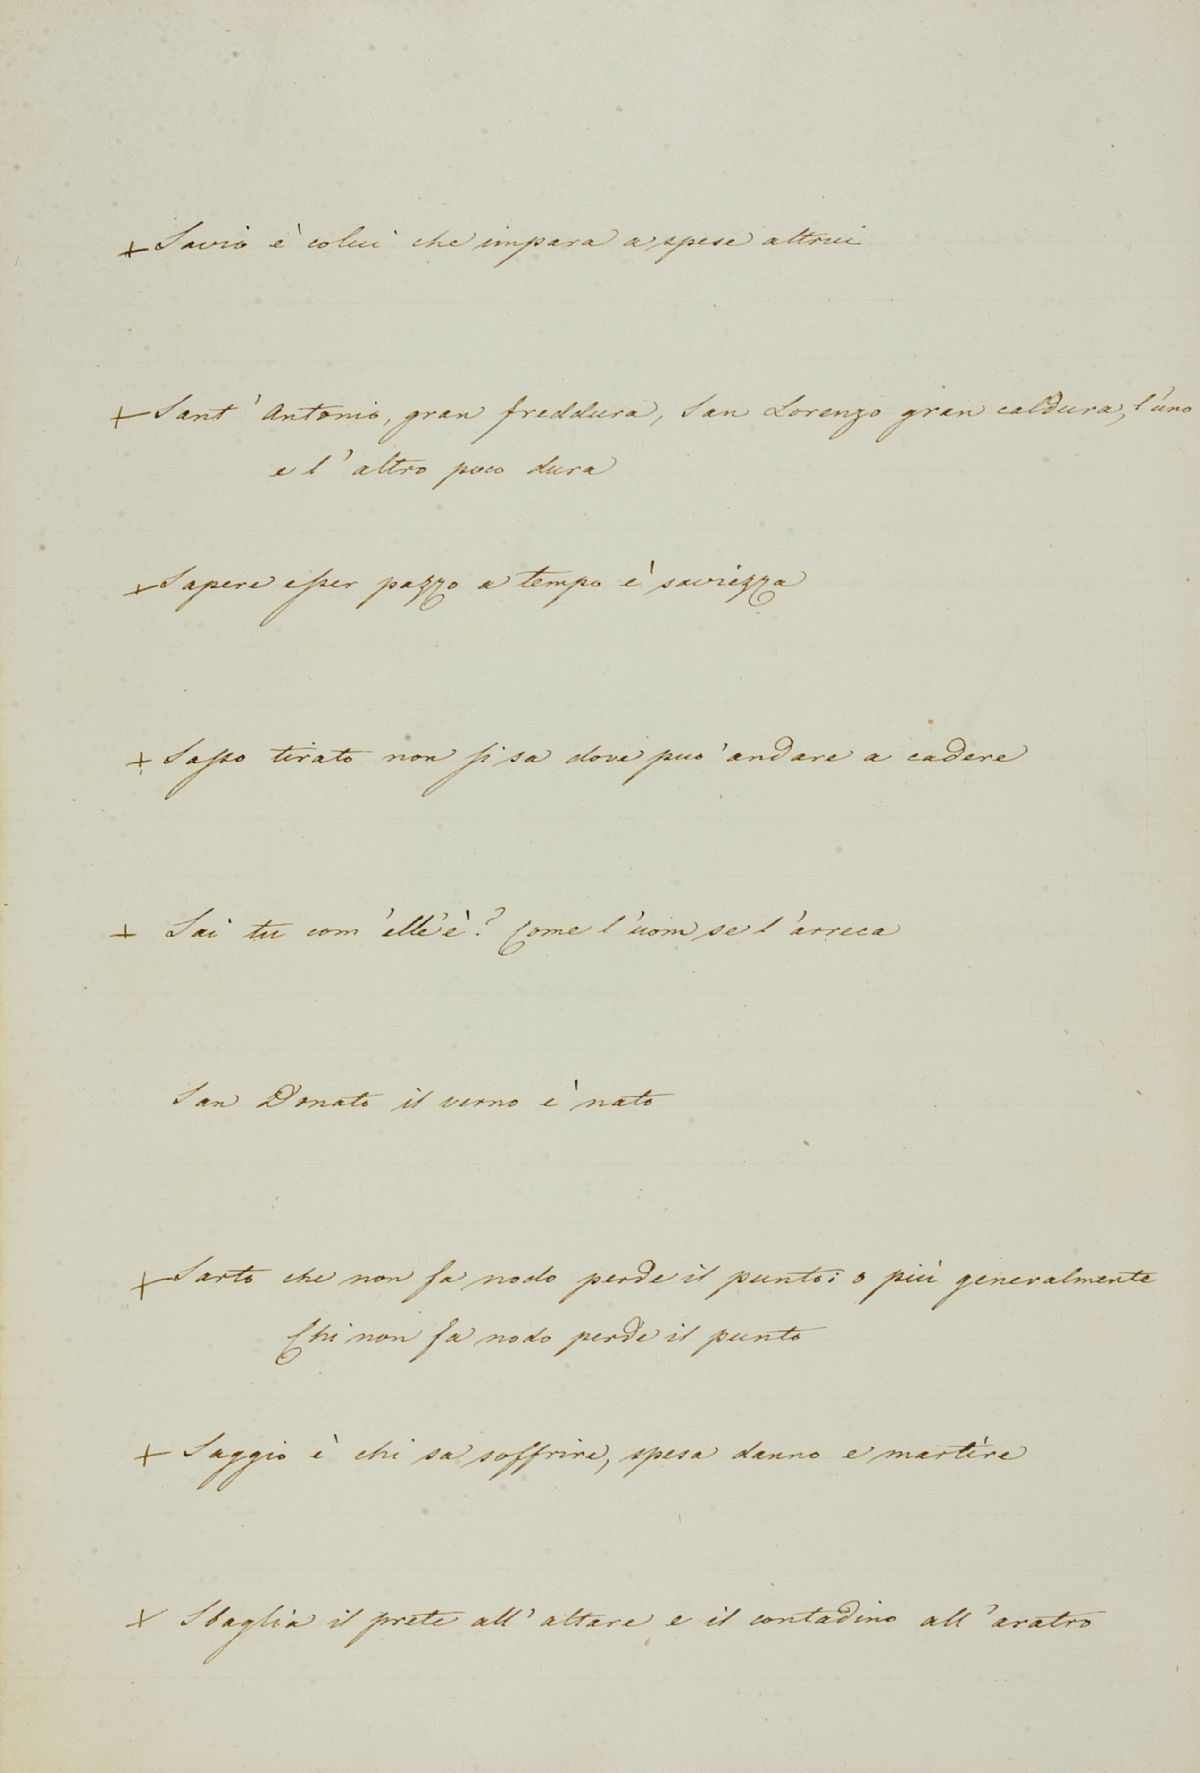 + Savio è colui che impara a spese altrui
+ Sant' Antonio, gran freddura, San Lorenzo gran caldura, l'uno
e l'altro poco dura
+ Sapere esser pazzo a tempo è saviezza
+ Sasso tirato non si sa dove puo' andare a cadere
+ Sai tu com'ell'è? Come l'uom se l'arreca
San Donato il verno è nato
+ Sarto che non fa nodo perde il punto; o più generalmente
Chi non fa nodo perde il punto
+ Saggio è chi sa soffrire, spesa danno e martìre
+ Sbaglia il prete all'altare e il contadino all'aratro